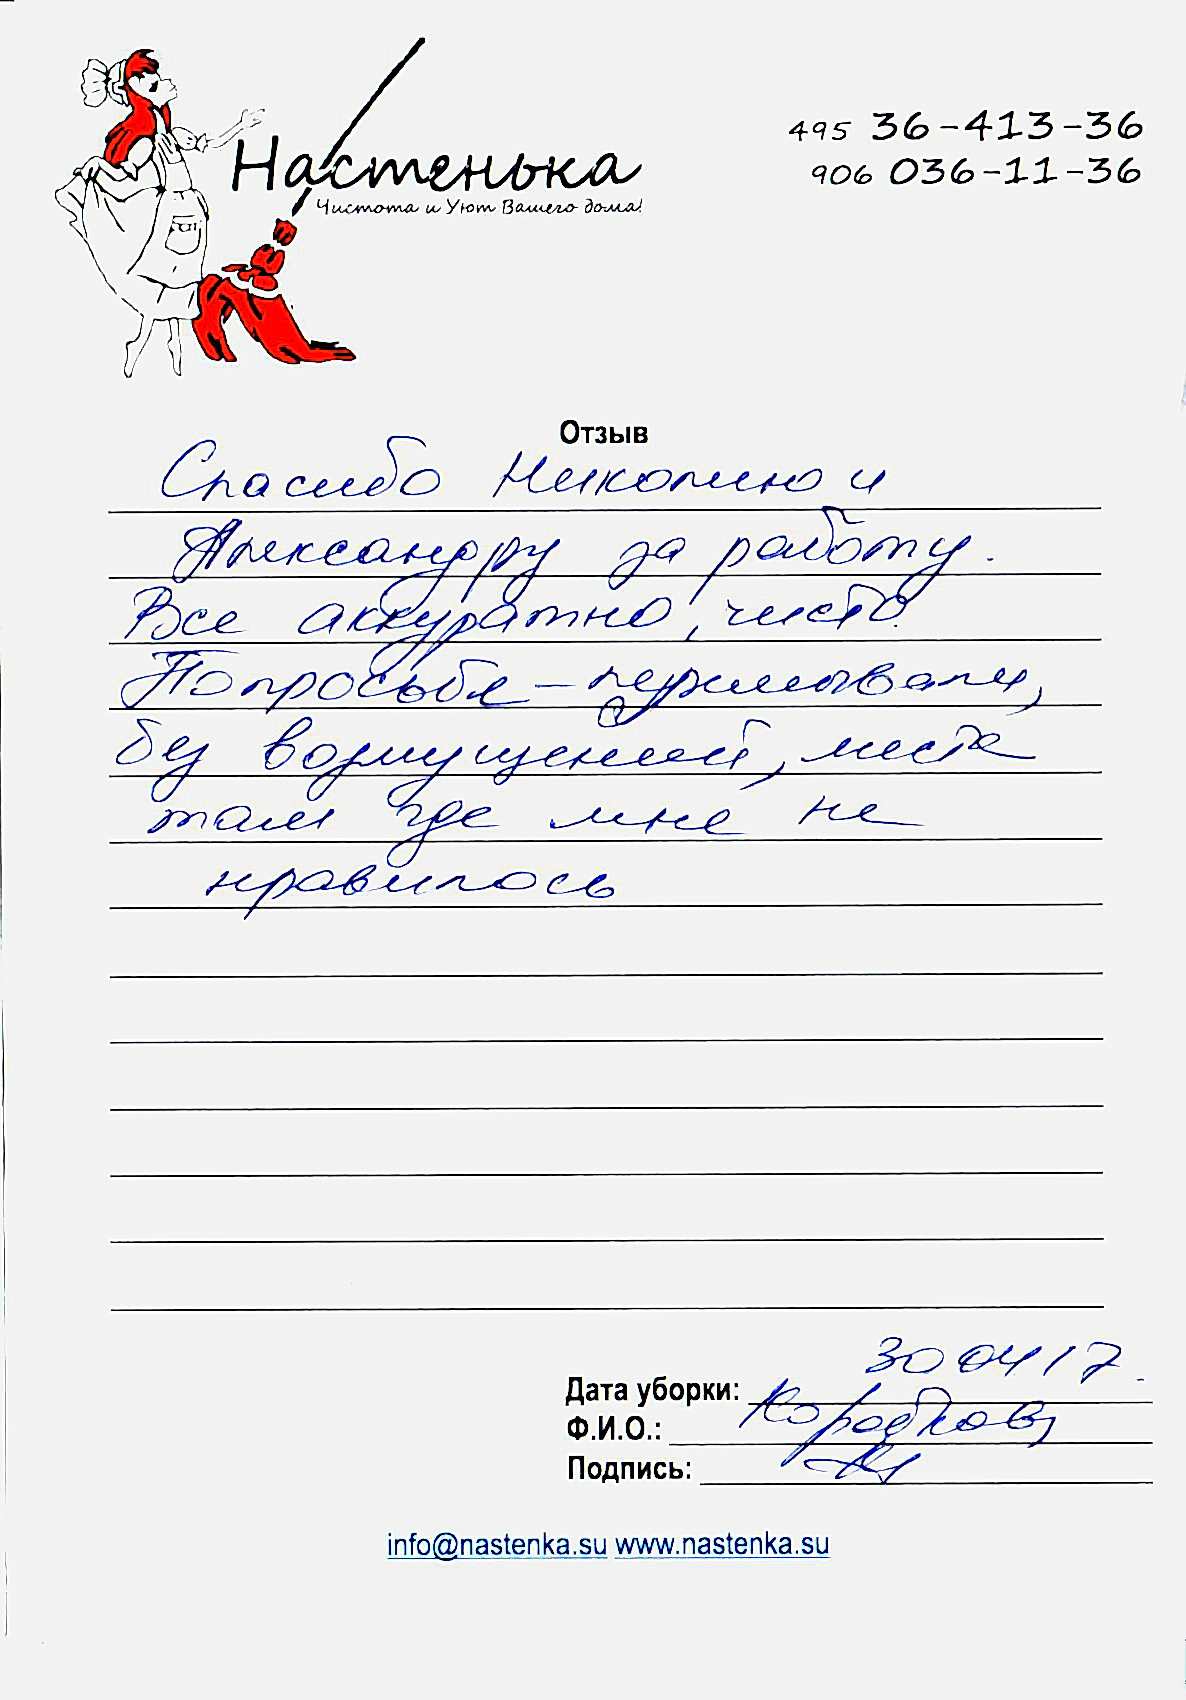 Настенька
Чистота и Уют Вашего дома!
495 36-413-36
906 036-11-36
Отзыв
Спасибо Николино и
Александру за работу.
Все аккуратно, чисто.
По просьбе - перемывали,
без возмущений, места
там где мне не
нравилось
Дата уборки: 30 04 17.
Ф.И.О.:
Подпись:
info@nastenka.su www.nastenka.su